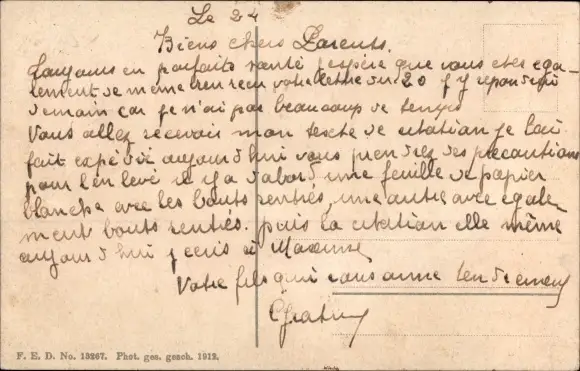 Le 24
Biens chers Parents.
Toujours en parfaite santé j'espère que vous etes ega-
lement de meme bien recu votre lettre du 20 j'y repondrai
demain car je n'ai pas beaucoup de temps
Vous allez recevoir mon texte de citation je l'ai
fait expédié aujourd'hui vous prendrez des precautions
pour l'enlevé il y a d'abord une feuille de papier
blanche avec les bouts rentrés, une autre avec egale-
ment bouts rentrés. puis la citation elle même
aujourd'hui j'ecris à
Votre fils qui vous aime tendrement
F. E. D. No. 13267. Phot. ges. gesch. 1912.